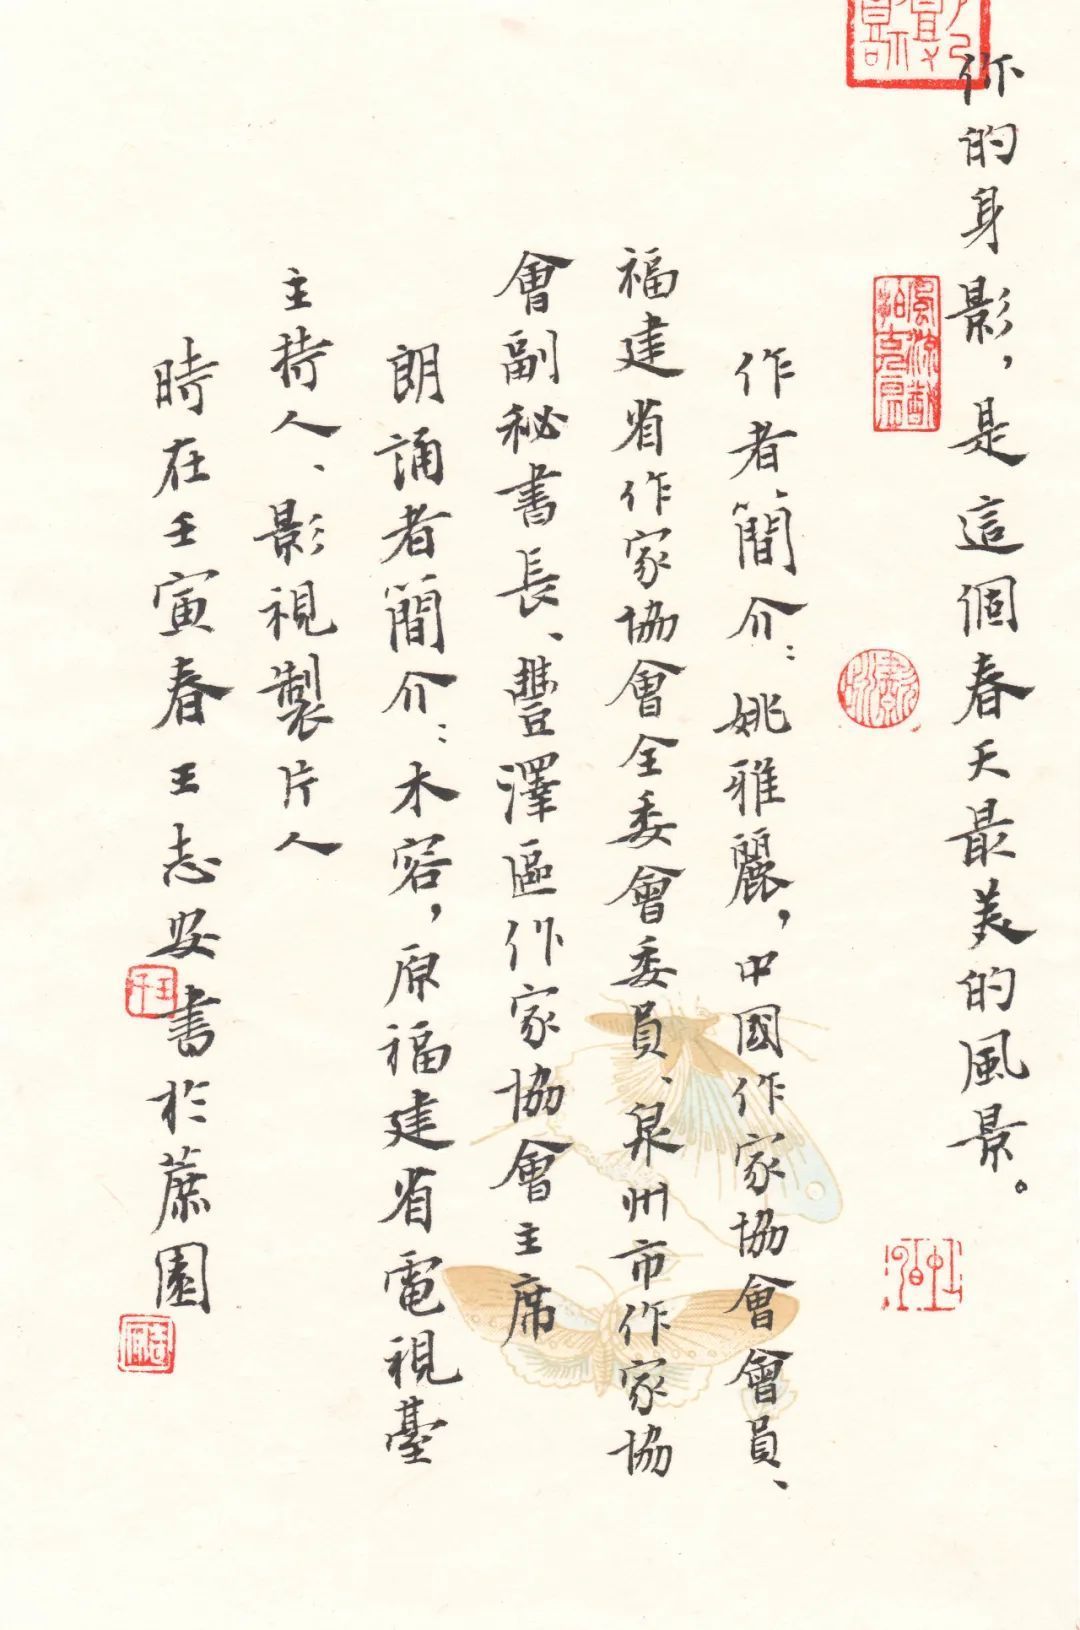 你的身影，是這個春天最美的風景。
作者簡介：姚雅麗，中國作家協會會員、
福建省作家協會全委會委員、泉州市作家協
會副秘書長、豐澤區作家協會主席
朗誦者簡介：木容，原福建省電視臺
主持人、影視製片人
時在壬寅春王志安書於蔗園